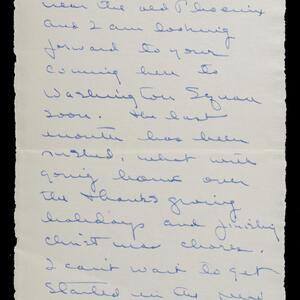 near the old Phoenix
and I am looking
forward to your
coming here to
Washington Square
soon. The last
month has been
rushed, what with
going home over
the Thanksgiving
holidays and finishing
Christmas chores.
I can't want to get
started in the new